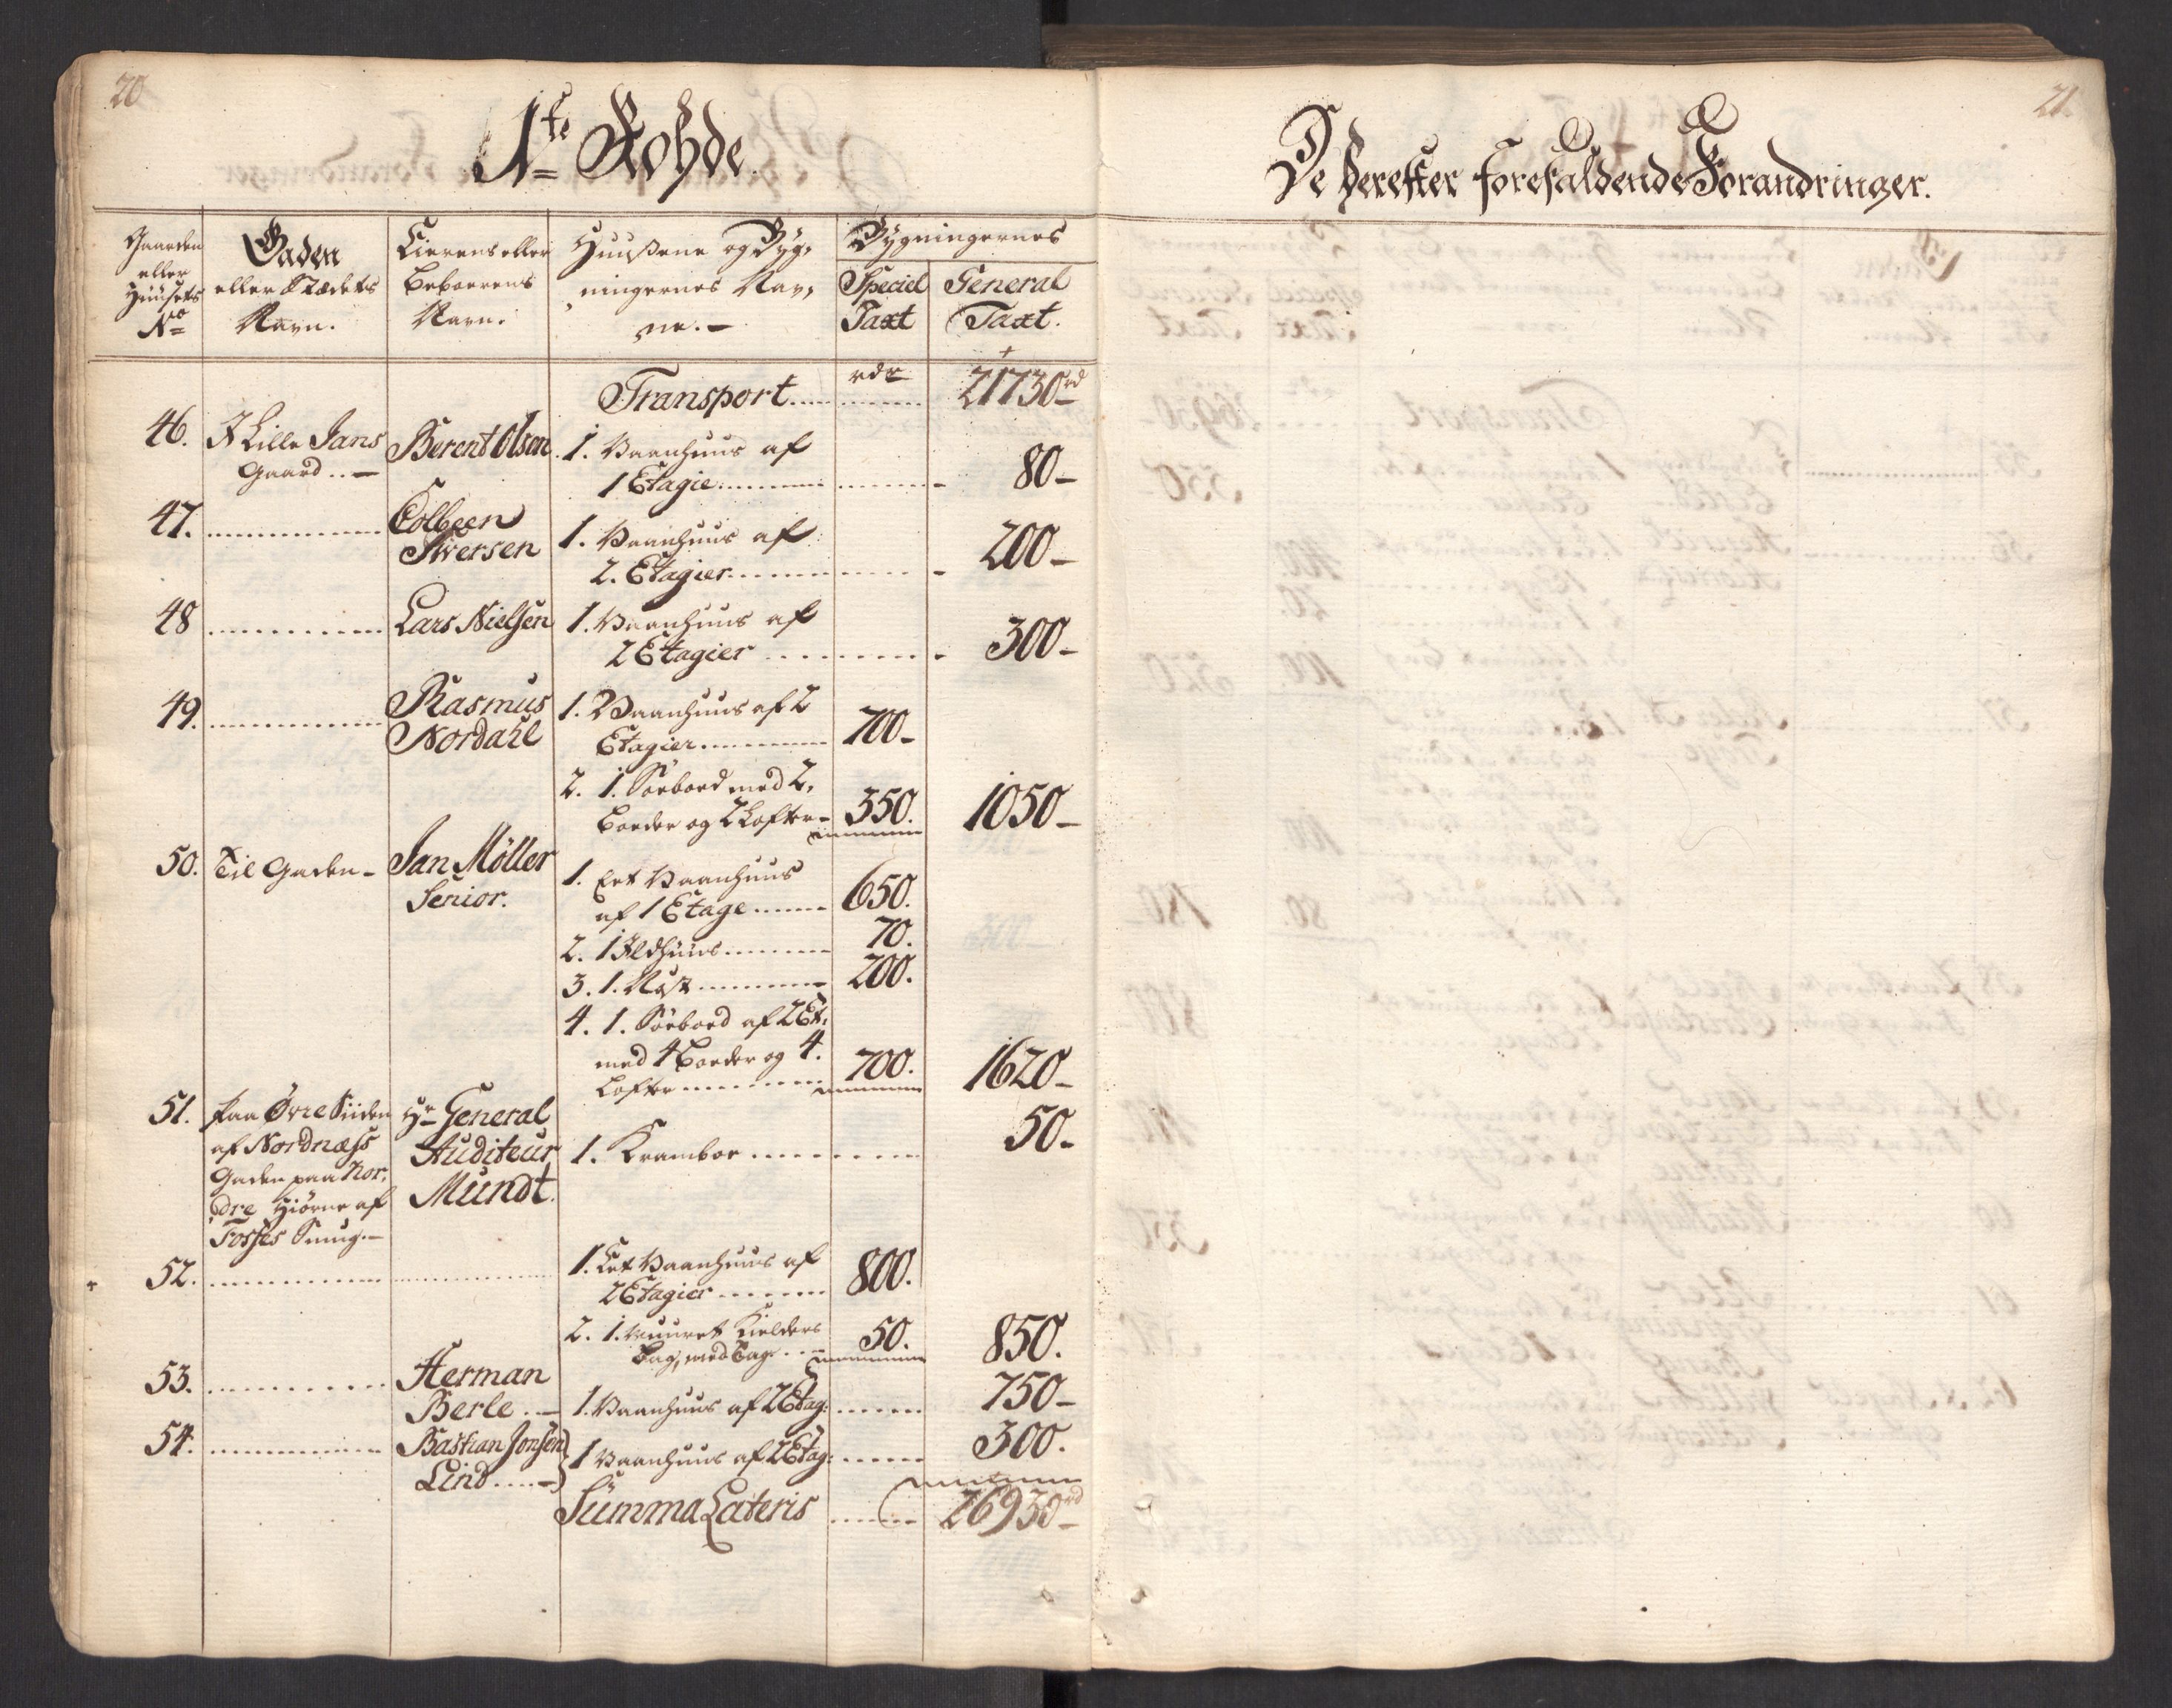 20
1te Rohde.
Gaarden eller Huusets No
Gaden eller Stædets Navn.
Eierens eller Beboerens Navn.
Huusene og Byg,
ningernes Nav,
ne. —
Bygningernes
Speciel Taxt
General Taxt.
Transport ...... rdr 21730 rd
46. I Lille Jans Berent Olsen 1. Vaanhuus af
Gaard .. — 1 Etagie ........ 80 —
47. ........ Colbeen 1. Vaanhuus af
Siversen 2. Etagier ........ 200 —
48 ........ Lars Nielsen 1. Vaanhuus af
2 Etagier ........ 300 —
49. ........ Rasmus 1. Vaanhuus af 2
Nordahl Etagier ........ 700 —
2. 1. Søeboed med 2,
Boeder og 2 Lofter — 350. 1050 —
50. Til Gaden — Jan Møller 1. Eet Vaanhuus
Senior. af 1 Etage ...... 650.
2. 1 Ildhuus ........ 70.
3. 1. Nøst ........ 200.
4. 1. Søeboed af 2 Et,
med 4 Boeder og 4.
Lofter ........ 700. 1620 —
51. Paa Øvre Siiden Hr General
af Nordnæss Auditeur 1. Kramboe ........ 50 —
Gaden paa Nor, Mundt.
dre Hiørne af
Fosses Smug. —
52. ........ 1. Eet Vaanhuus af
2 Etagier ........ 800.
2. 1. muuret Kielder
Bag, med Tag .... 50. 850.
53. ........ Herman
Berle .. — 1. Vaanhuus af 2 Etag: ...... 750 —
54. ........ Bastian Jonsen
Lind .... — 1 Vaanhuus af 2 Etag: ...... 300.
Summa Lateris ...... 26930 rd
21.
De derefter forefaldende Forandringer.